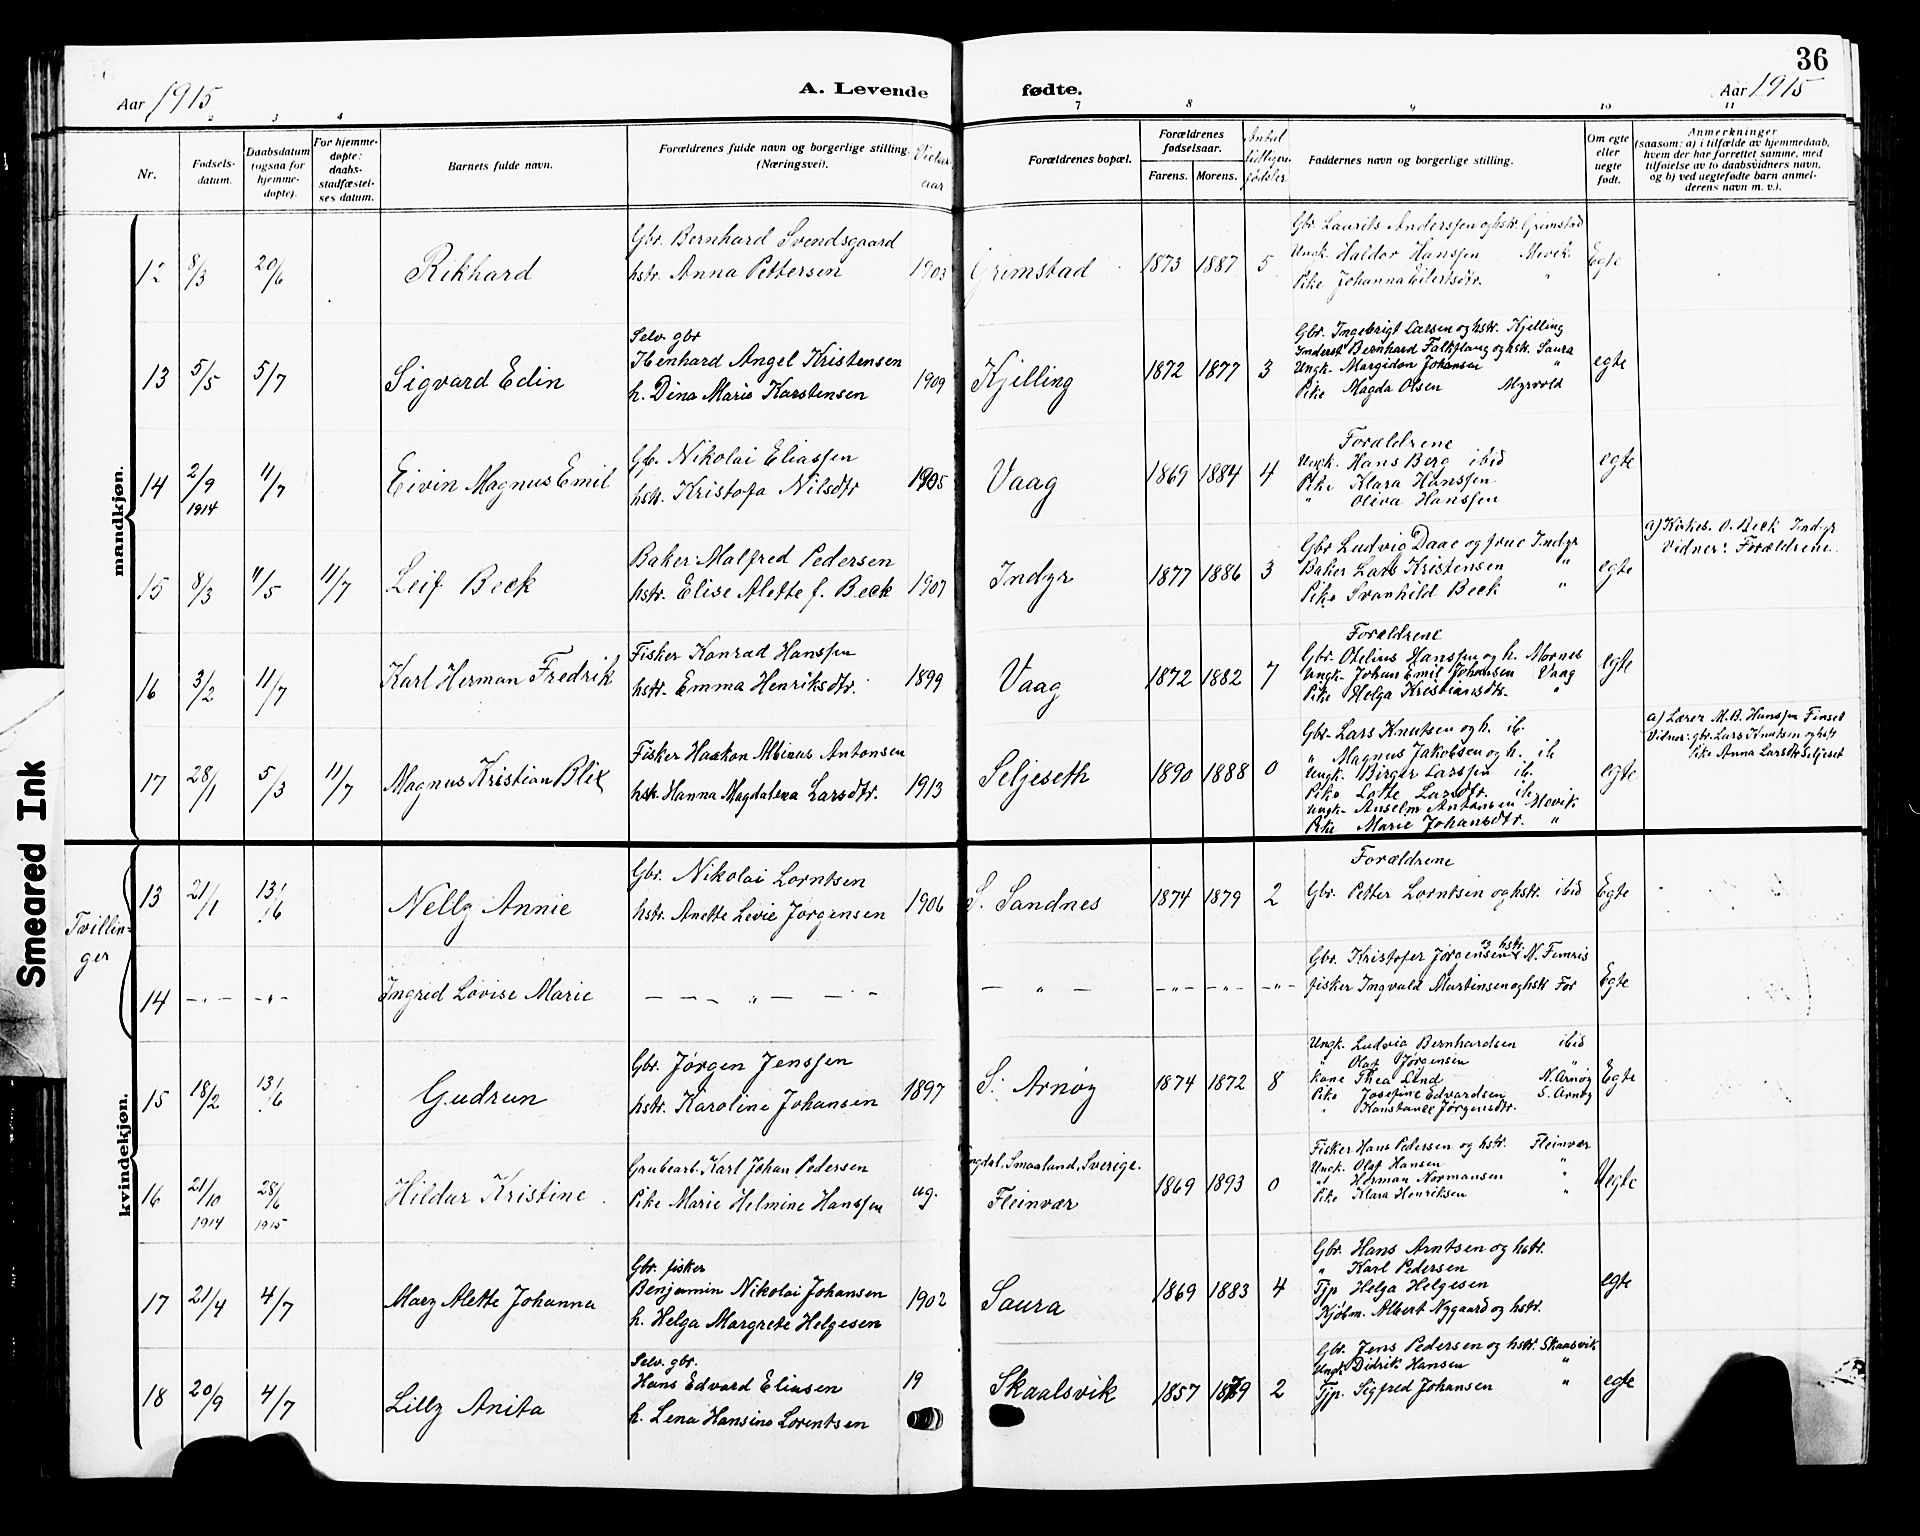 36
Aar 1915
A. Levende fødte.
Aar 1915
2 3 4 7 8 9 10 11
Nr.
Fødsels-
datum.
Daabsdatum
(ogsaa for
hjemme-
døpte).
For hjemme-
døpte:
daabs-
stadfæstel-
ses datum.
Barnets fulde navn.
Forældrenes fulde navn og borgerlige stilling.
(Næringsvei).
Vielses
aar
Forældrenes bopæl.
Forældrenes
fødselsaar.
Farens. Morens.
Antal
tidligere
fødsler
Faddernes navn og borgerlige stilling.
Om egte
eller
uegte
født.
Anmerkninger
(saasom: a) i tilfælde av hjemmedaab,
hvem der har forrettet samme, med
tilføielse av to daabsvidners navn,
og b) ved uegtefødte barn anmel-
derens navn m. v.).
mandkjøn.
12 8/3 20/6 Rikhard
Gbr. Bernhard Svendsgaard
hstr. Anna Pettersen
1903 Grimstad 1873 1887 5
Gbr. Laurits Anderssen og hstr. Grimstad
Ungk. Haldor Hanssen Mevik
Pike Johanna Eilertsdtr. "
Egte
13 5/5 5/7 Sigvard Edin
Selv. gbr
Ibenhard Angel Kristensen
h. Dina Marie Karstensen
1909 Kjelling 1872 1877 3
Gbr. Ingebrigt Larsen og hstr. Kjelling
Inderst Bernhard Falkflaug og hstr. Saura
Ungk. Margidon Johansen "
Pike Magda Olsen Myrvold
egte
14 2/9 1914 11/7 Eivin Magnus Emil
Gbr. Nikolai Eliassen
hstr. Kristofa Nilsdtr
1905 Vaag 1869 1884 4
Forældrene
Ungk. Hans Berg ibid
Pike Klara Hanssen
" Oliva Hanssen
egte
15 8/3 11/5 11/7 Leif Beck
Baker Malfred Pedersen
hstr. Elise Alette f. Beck
1907 Indyr 1877 1886 3
Gbr Ludvig Daae og frue Indyr
Baker Lars Kristensen "
Pike Svanhild Beck "
egte
a) Kirkes. O. Beck Indyr
Vidner: Forældrene
16 3/2 11/7 Karl Herman Fredrik
Fisker Konrad Hanssen
hstr. Emma Henriksdtr.
1899 Vaag 1872 1882 7
Forældrene
Gbr. Otelius Hanssen og h. Mornes
Ungk. Johan Emil Johansen Vaag
Pike Helga Kristiansdtr. "
egte
17 28/1 5/3 11/7 Magnus Kristian Blix
Fisker Haakon Albinus Antonsen
hstr. Hanna Magdalena Larsdtr.
1913 Seljeseth 1890 1888 0
Gbr. Lars Knutsen og h. ib.
" Magnus Jakobsen og h. ib
Ungk. Birger Larssen ib.
Pike Lotte Larsdtr. ib.
Ungk. Anselm Antonsen Mevik
Pike Marie Johansdtr. "
egte
a) Lærer M. B. Hanssen Finset
Vidner: gbr. Lars Knutsen og hstr
Pike Anna Larsdtr Seljeset
kvindekjøn.
Tvillin-
ger
13 21/1 13/6 Nelly Annie
Gbr. Nikolai Lorntsen
hstr. Anette Levie Jørgensen
1906 S. Sandnes 1874 1879 2
Forældrene
Gbr. Petter Lorntsen og hstr. ibid
Egte
14 – " – – " – Ingred Lovise Marie
— — — " — — —
— " — – " – – " – – " –
Gbr. Kristofer Jørgensen og hstr. N. Femris
fisker Ingvald Martinsen og hstr For
Egte
15 18/2 13/6 Gudrun
Gbr. Jørgen Jenssen
hstr. Karoline Johansen
1897 S. Arnøy 1874 1872 8
Ungk. Ludvig Bernhardsen ibid
" Olaf Jørgensen "
Kone Thea Lind N. Arnøy
Pike Josefine Edvardsen S. Arnøy
" Konstanse Jørgensdtr.
Egte
16 21/10 1914 28/6 1915 Hildur Kristine
Grubearb. Karl Johan Pedersen
Pike Marie Helmine Hanssen
ug.
Smaaland, Sverige.
Fleinvær
1869 1893 0
Fisker Hans Pedersen og hstr. Fleinvær
Ungk. Olaf Hansen "
" Herman Normansen "
Pike Klara Henriksen "
Uegte
17 21/4 4/7 Mary Alette Johanna
Gbr. fisker
Benjamin Nikolai Johansen
h. Helga Margrete Helgesen
1902 Saura 1869 1883 4
Gbr. Hans Arntsen og hstr.
" Karl Pedersen
Tjp. Helga Helgesen
Kjøbm. Albert Nygaard og hstr.
egte
18 20/9 4/7 Lilly Anita
Selv. gbr.
Hans Edvard Eliasen
h. Lena Hansine Lorentsen
19 Skaalsvik 1857 1879 2
Gbr. Jens Pedersen og hstr. Skaalsvik
Ungk. Didrik Hansen "
Tjp. Sigfred Johansen "
egte
Smeared Ink